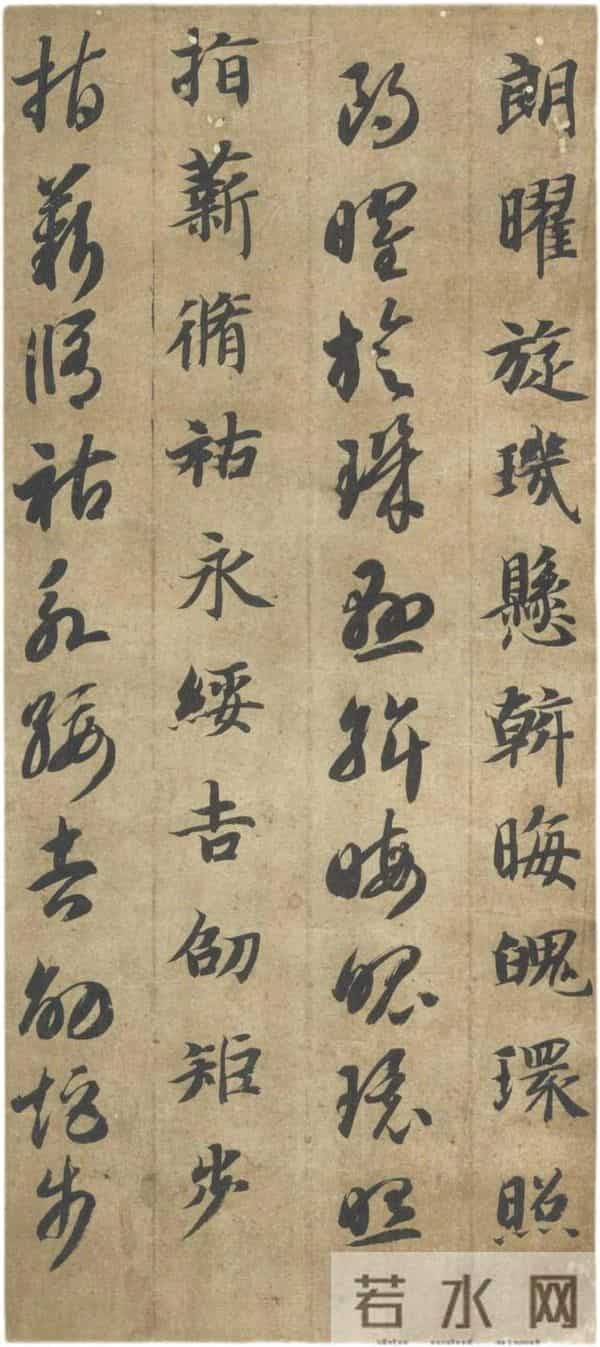 朗曜旋璣懸斡晦魄環照
朗曜旋璣懸斡晦魄環照
指薪脩祜永綏吉劭矩步
指薪脩祜永綏吉劭矩步
若水网